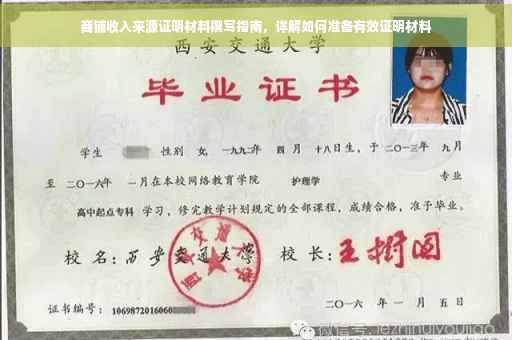 商铺收入来源证明材料撰写指南，详解如何准备有效证明材料
西安交通大学
毕业证书
学生 性别 女, 一九九二年 四月 十八日生, 于 二〇一三年 九月
至 二〇一六年 一月在本校网络教育学院 护理学 专业
高中起点专科 学习, 修完教学计划规定的全部课程, 成绩合格, 准予毕业。
校名: 西安交通大学 校长: 王树国
西安交通大学
证书编号: 1069872016060
二〇一六年 一月 五日
微信号: jezhihuiyoujiao